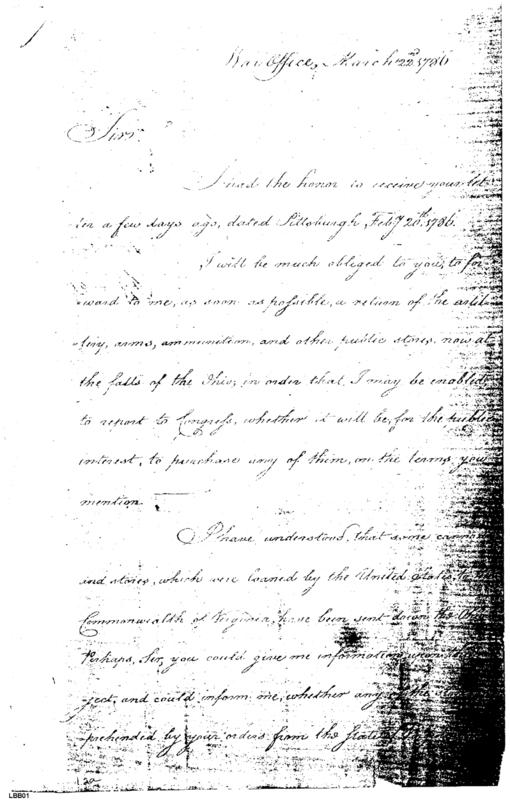 War Office, March 22d. 1786
Sir.
I had the honor to receive your let-
ter a few days ago, dated Pittsburgh, Feby 20th. 1786.
I will be much obliged to you, to for-
ward to me, as soon as possible, a return of the artil-
lery, arms, ammunition, and other public stores, now at
the falls of the Ohio, in order that, I may be enabled
to report to Congress, whether it will be, for the public
interest, to purchase any of them, on the terms you
mention
I have understood, that some cannon
and stores, which were loaned by the United States, to
Commonwealth of Virginia, have been sent down the
Perhaps, Sir, you could give me information
ject, and could inform me, whether any of the
prehended by your orders from the State
LBB01